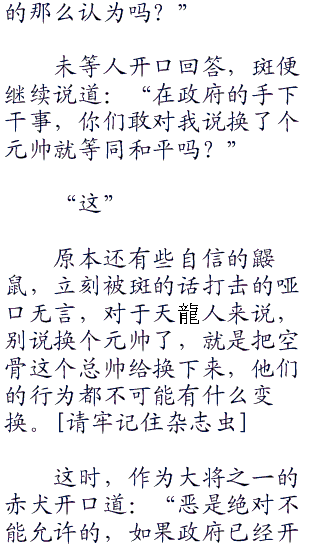 的那么认为吗？”
未等人开口回答，斑便
继续说道：“在政府的手下
干事，你们敢对我说换了个
元帅就等同和平吗？”
“这”
原本还有些自信的鼹
鼠，立刻被斑的话打击的哑
口无言，对于天龍人来说，
别说换个元帅了，就是把空
骨这个总帅给换下来，他们
的行为都不可能有什么变
换。[请牢记住杂志虫]
这时，作为大将之一的
赤犬开口道：“恶是绝对不
能允许的，如果政府已经开